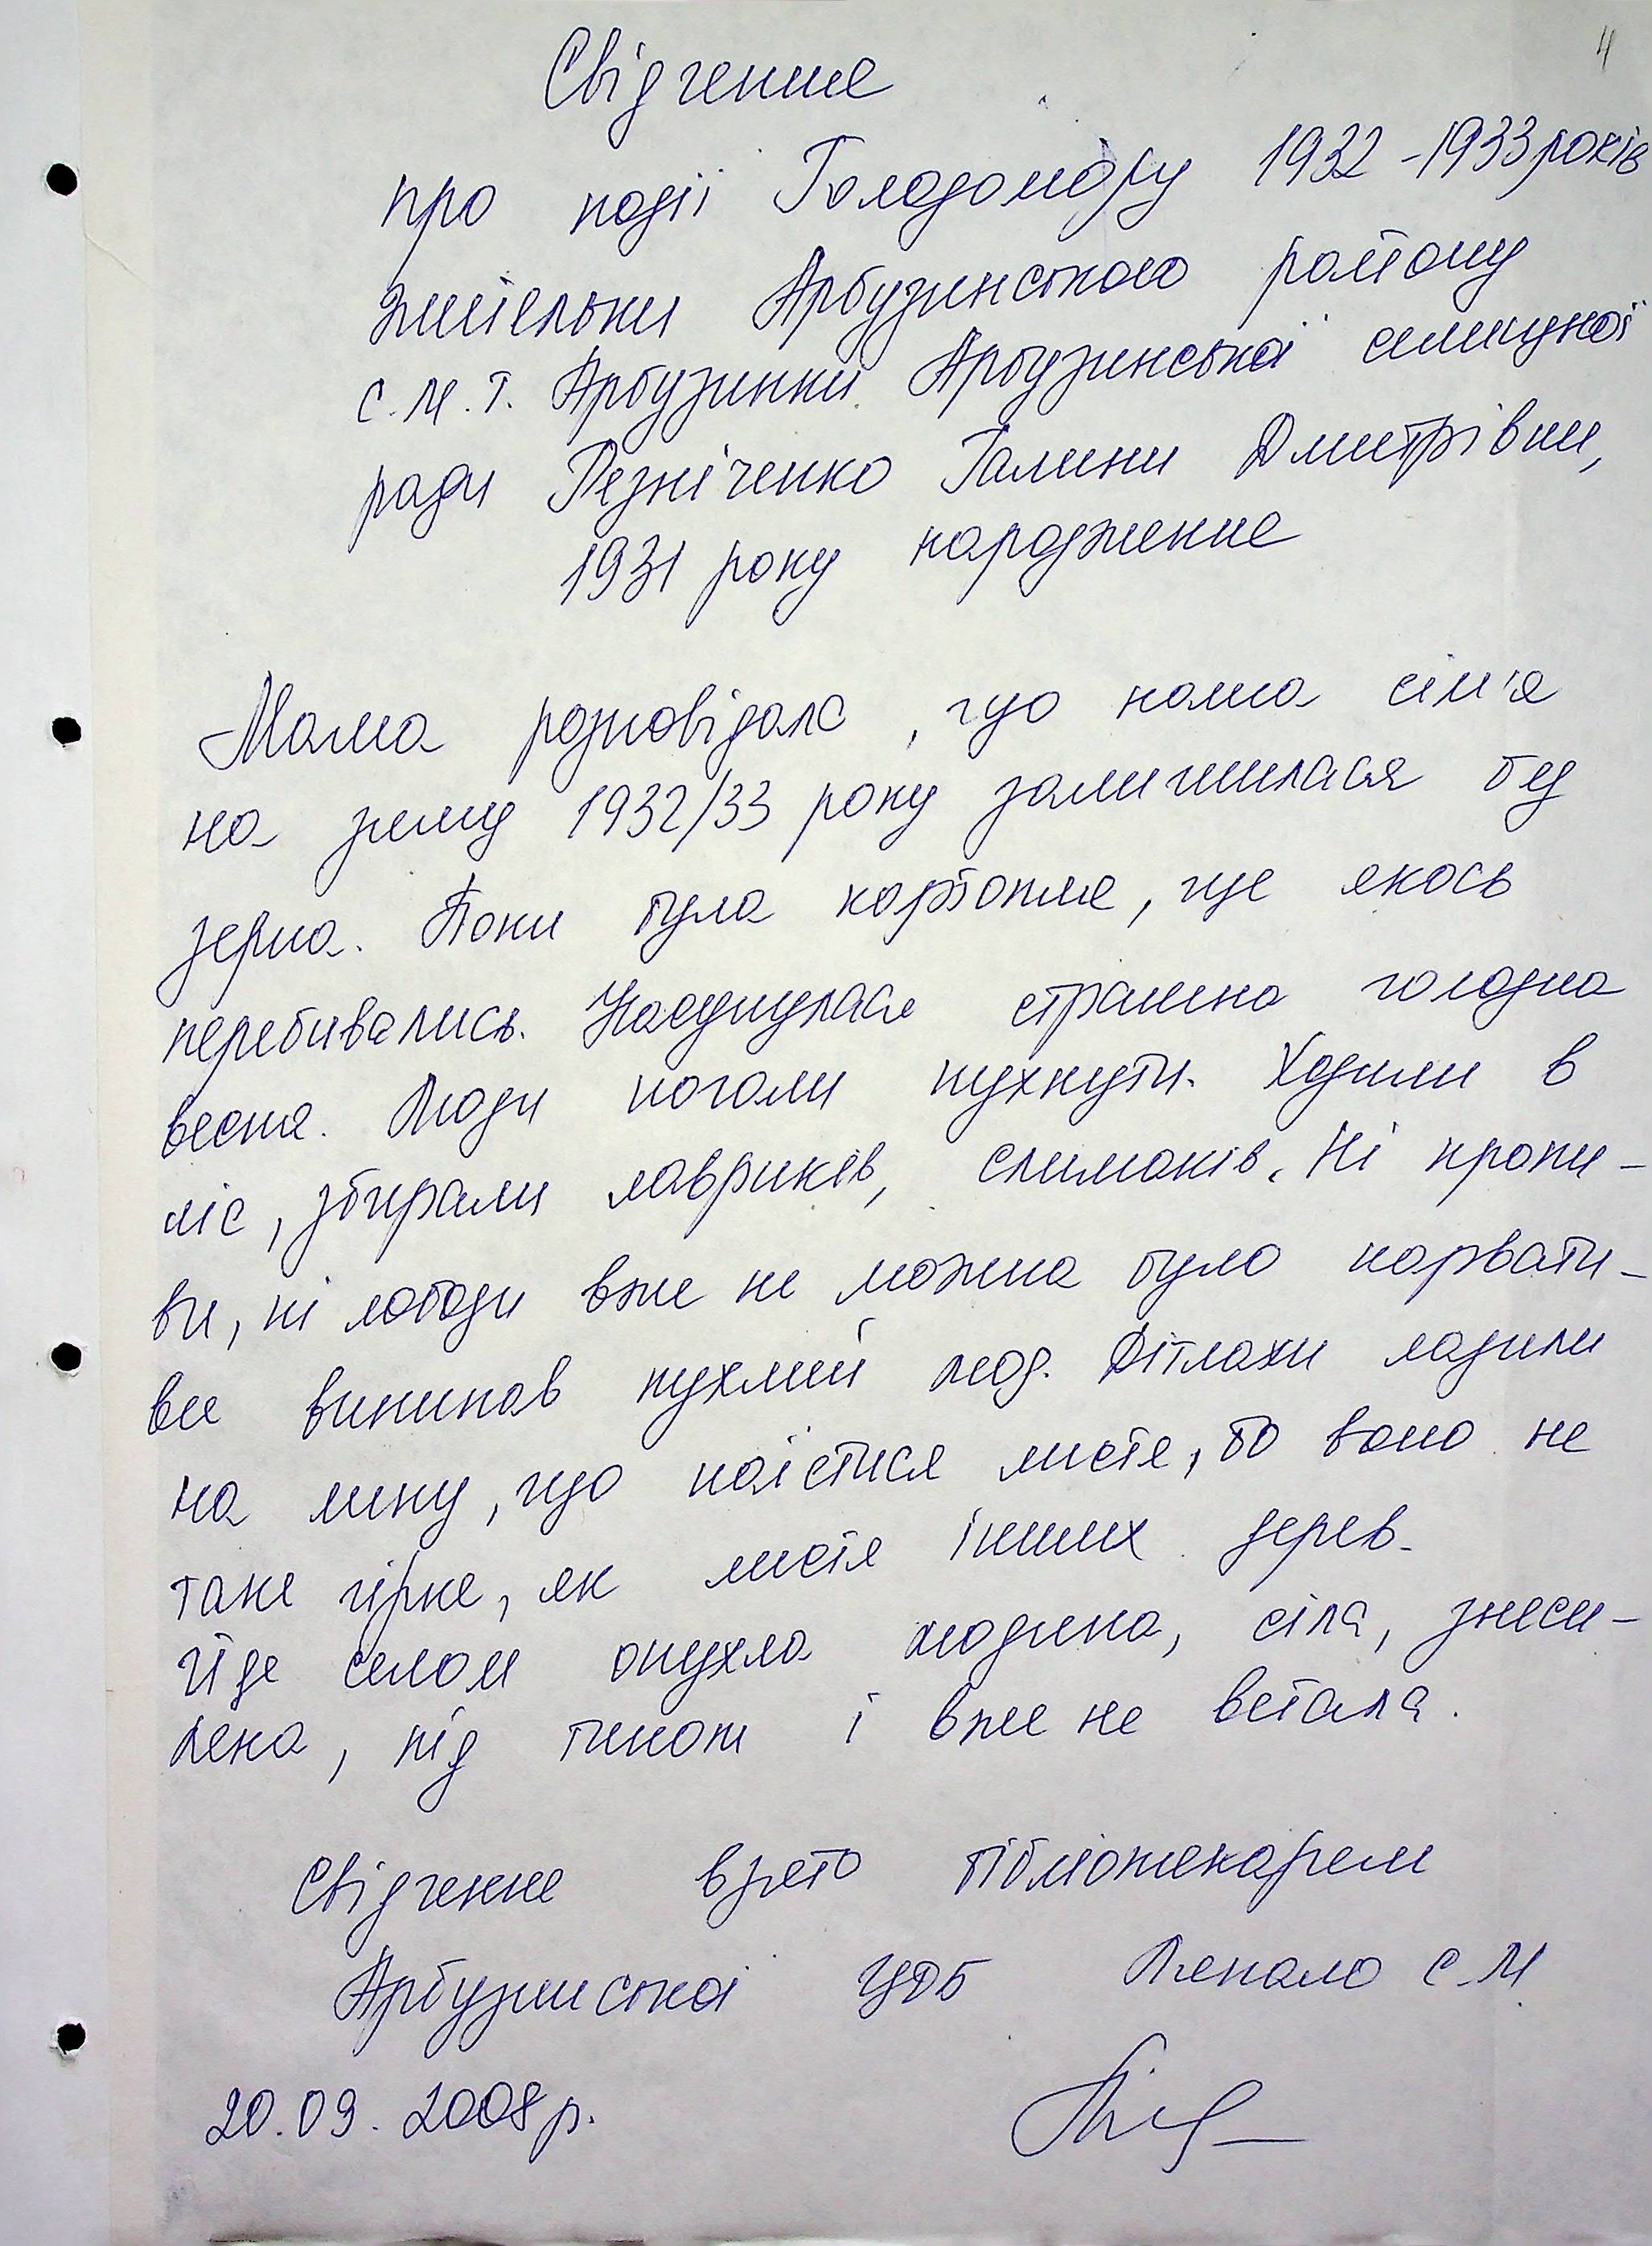 4
Свідчення
про події Голодомору 1932-1933 років
жительки Арбузинського району
с.м.т. Арбузинки Арбузинської селищної
ради Резніченко Галини Дмитрівни,
1931 року народження
Мама розповідала, що наша сім'я
на зиму 1932/33 року залишилася без
зерна. Поки була картопля, ще якось
перебивались. Насунулася страшна голодна
весна. Люди почали пухнути. Ходили в
ліс, збирали лавриків, слимаків. Ні кропи-
ви, ні лободи вже не можна було нарвати-
все вискуб пухлий люд. Дітлахи лазили
на липу, що наїстися листя, бо воно не
таке гірке, як листя інших дерев.
Йде селом опухла людина, сіла, знеси-
лена, під тином і вже не встала.
Свідчення взято бібліотекарем
Арбузинської ЦРБ С.М
20.09.2008р.